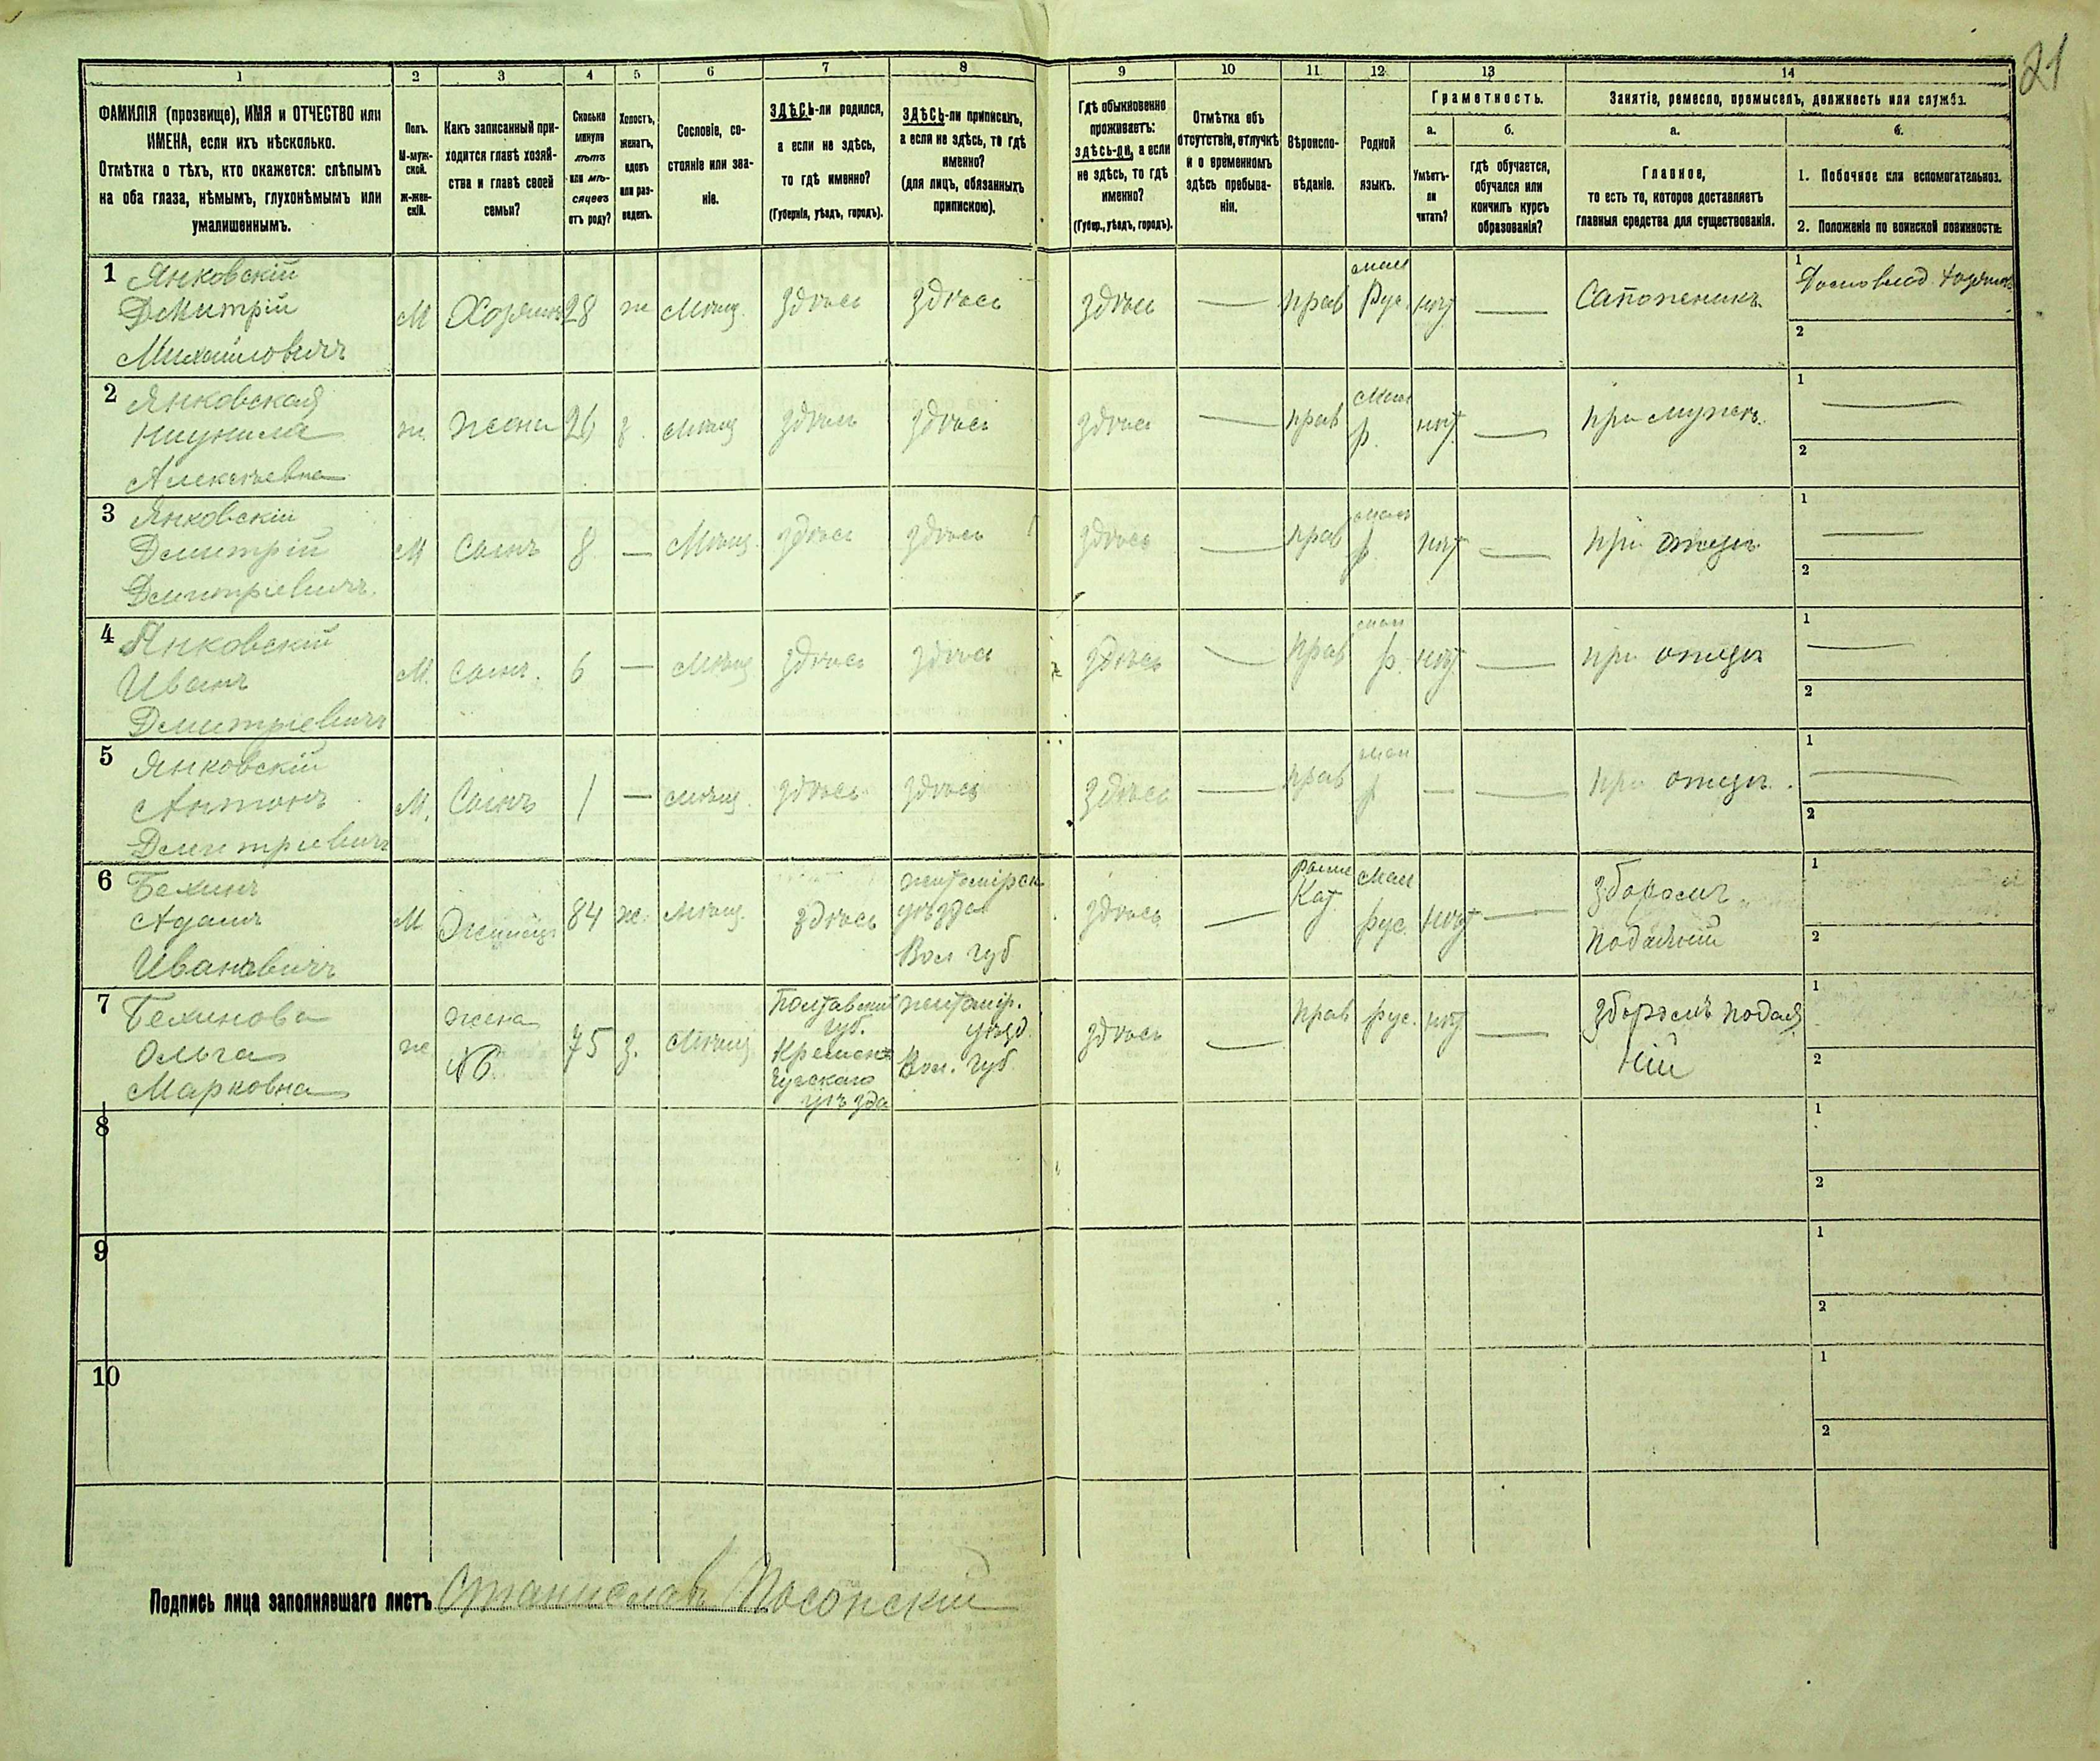 21
1 2 3 4 5 6 7 8 9 10 11 12 13 14
ФАМИЛІЯ (прозвище), ИМЯ и ОТЧЕСТВО или
ИМЕНА, если ихъ нѣсколько.
Отмѣтка о тѣхъ, кто окажется: слѣпымъ
на оба глаза, нѣмымъ, глухонѣмымъ или
умалишеннымъ.
Полъ.
М-муж-
ской.
ж-жен-
скій.
Какъ записанный при-
ходится главѣ хозяй-
ства и главѣ своей
семьи?
Сколько
минуло
лѣтъ
или мѣ-
сяцевъ
отъ роду?
Холостъ,
женатъ,
вдовъ
или раз-
веденъ.
Сословіе, со-
стояніе или зва-
ніе.
ЗДѢСЬ-ли родился,
а если не здѣсь,
то гдѣ именно?
(Губернія, уѣздъ, городъ).
ЗДѢСЬ-ли приписанъ,
а если не здѣсь, то гдѣ
именно?
(для лицъ, обязанныхъ
припискою).
Гдѣ обыкновенно
проживаетъ:
здѣсь-ли, а если
не здѣсь, то гдѣ
именно?
(Губер., уѣздъ, городъ).
Отмѣтка объ
отсутствіи, отлучкѣ
и о временномъ
здѣсь пребыва-
ніи.
Вѣроиспо-
вѣданіе.
Родной
языкъ.
Грамотность.
а.
Умѣетъ-
ли
читать?
б.
гдѣ обучается,
обучался или
кончилъ курсъ
образованія?
Занятіе, ремесло, промыселъ, должность или служба.
а.
Главное,
то есть то, которое доставляетъ
главныя средства для существованія.
б.
1. Побочное или вспомогательное.
2. Положеніе по воинской повинности.
1 Янковскій
Дмитрій
Михайловичъ
М Хозяинъ 28 ж Мѣщ. здѣсь здѣсь здѣсь — прав мал
Рус. нѣт — Сапожникъ
1
2
2 Янковская
Алексѣевна
ж. жена 26 з. мѣщ здѣсь здѣсь здѣсь — прав мал
р. нѣт — при мужѣ
1 —
2
3 Янковскій
Дмитрій
Дмитріевичъ.
М Сынъ 8 — Мѣщ. здѣсь здѣсь здѣсь — прав мал
р нѣт — при отцѣ
1 —
2
4 Янковскій
Иванъ
Дмитріевичъ
М. сынъ. 6 — мѣщ здѣсь здѣсь здѣсь — прав мал
р. нѣт. — при отцѣ
1 —
2
5 Янковскій
Антонъ
Дмитріевичъ
М. Сынъ 1 — мѣщ. здѣсь здѣсь здѣсь — прав мал
р — — при отцѣ.
1 —
2
6
Адамъ
Ивановичъ
М 84 ж. мѣщ. здѣсь житомірск
уѣзда
Вол губ
здѣсь — Кат мал
рус. нѣт — зборомъ
подаяній
1
2
7
Ольга
Марковна
ж жена
№6 75 з. мѣщ Полтавскій
губ.
Кремен-
чугскаго
уѣзда
житомір.
уѣзд.
Вол. губ.
здѣсь — прав рус. нѣт — зборомъ подая
ній
1
2
8
1
2
9
1
2
10
1
2
Подпись лица заполнявшаго листъ Станиславъ